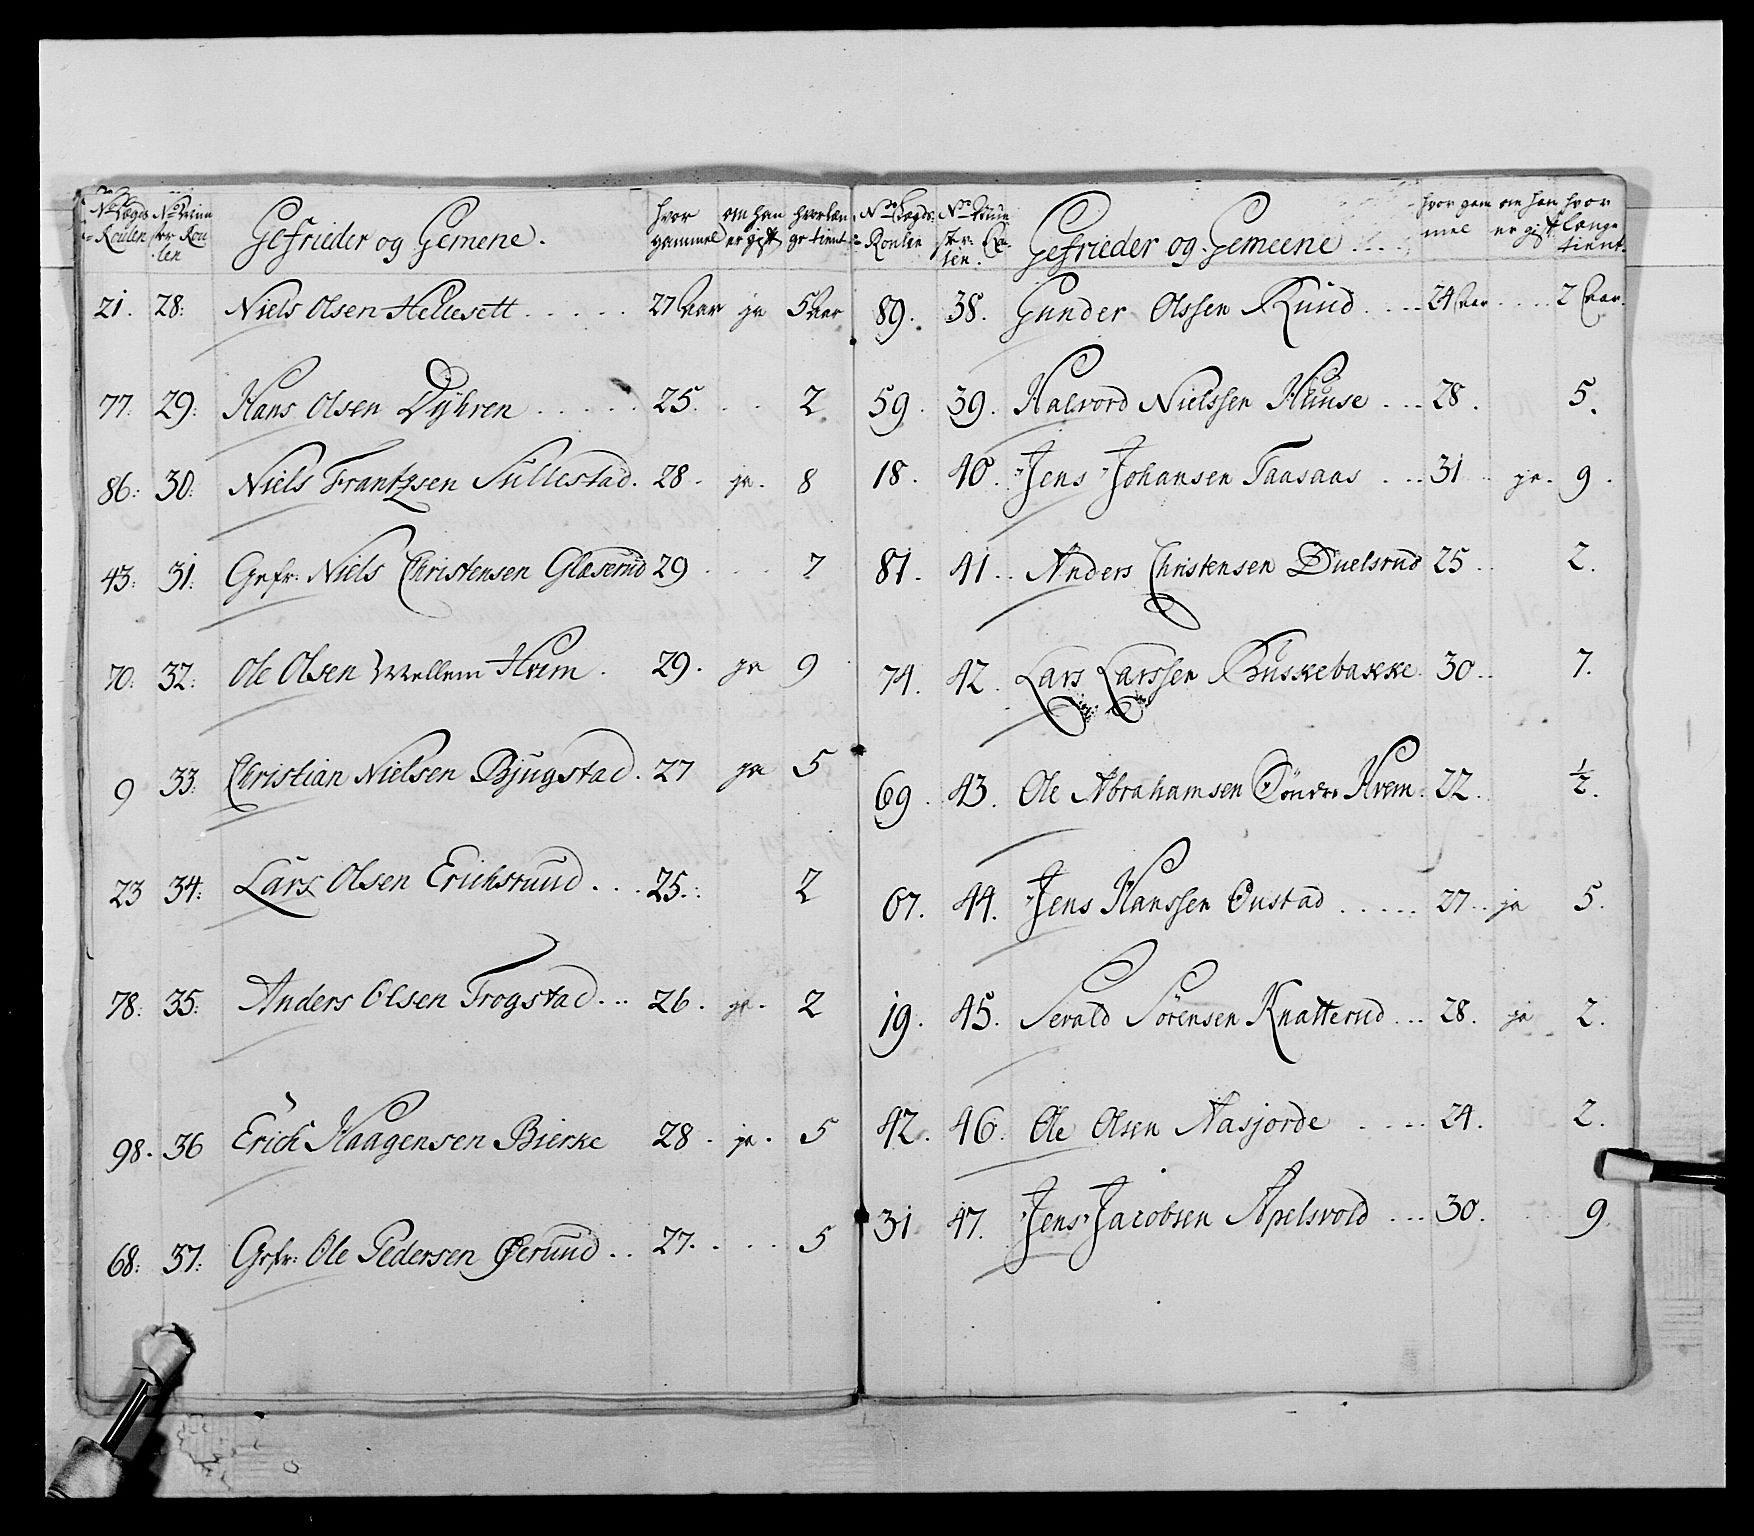 No Lægds Roulen No Mün ster Rou len Gefrieder og Gemene. hvor gammel om han er gift hvorlæn ge tient
21. 28: Niels Olsen Hellesett ..... 27 Aar ja 5 Aar
77: 29: Hans Olsen Dÿhren ..... 25. .. 2
86: 30: Niels Frantzsen Süllestad. 28. ja. 8
43: 31: Gefr: Niels Christensen Glæserud 29 ...
70: 32: Ole Olsen Mellem Hvem. 29. ja 9
9 33: Christian Nielsen Bjugstad. 27 ja 5
23 34: Lars Olsen Erichsruud ... 25.: 2
78: 35: Anders Olsen Trogstad ... 26. ja. 2
98. 36 Erich Haagensen Bierke 28. ja. 5
68: 37: Gefr: Ole Pedersen Øeruud .. 27. ... 5
No Lægds Roulen No Mün ster Rou len. Gefrieder og Gemeene ... hvor gam mel om han er gift hvor længe tient.
89. 38. Gunder Olssen Ruud .... 24 Aar .... 2 Aar.
59. 39. Halvord Nielssen Huuse ... 28. 5.
18. 40. Jens Johansen Taasaas ... 31 .. ja. 9.
81. 41.. Anders Christensen Duelsrud 25 .. 2.
74. 42. Lars Larssen Buskebakke. 30.. 7.
69. 43. Ole Abrahamsen Søndre Hvem. 22. 1/2.
67. 44. Jens Hanssen Onstad ..... 27.. ja 5.
19. 45. Sevald Sørensen Knatterud ... 28. ja 2.
42. 46. Ole Olsen Aasjorde .... 24. 2.
31 47. Jens Jacobsen Apelsvold ... 30. 9